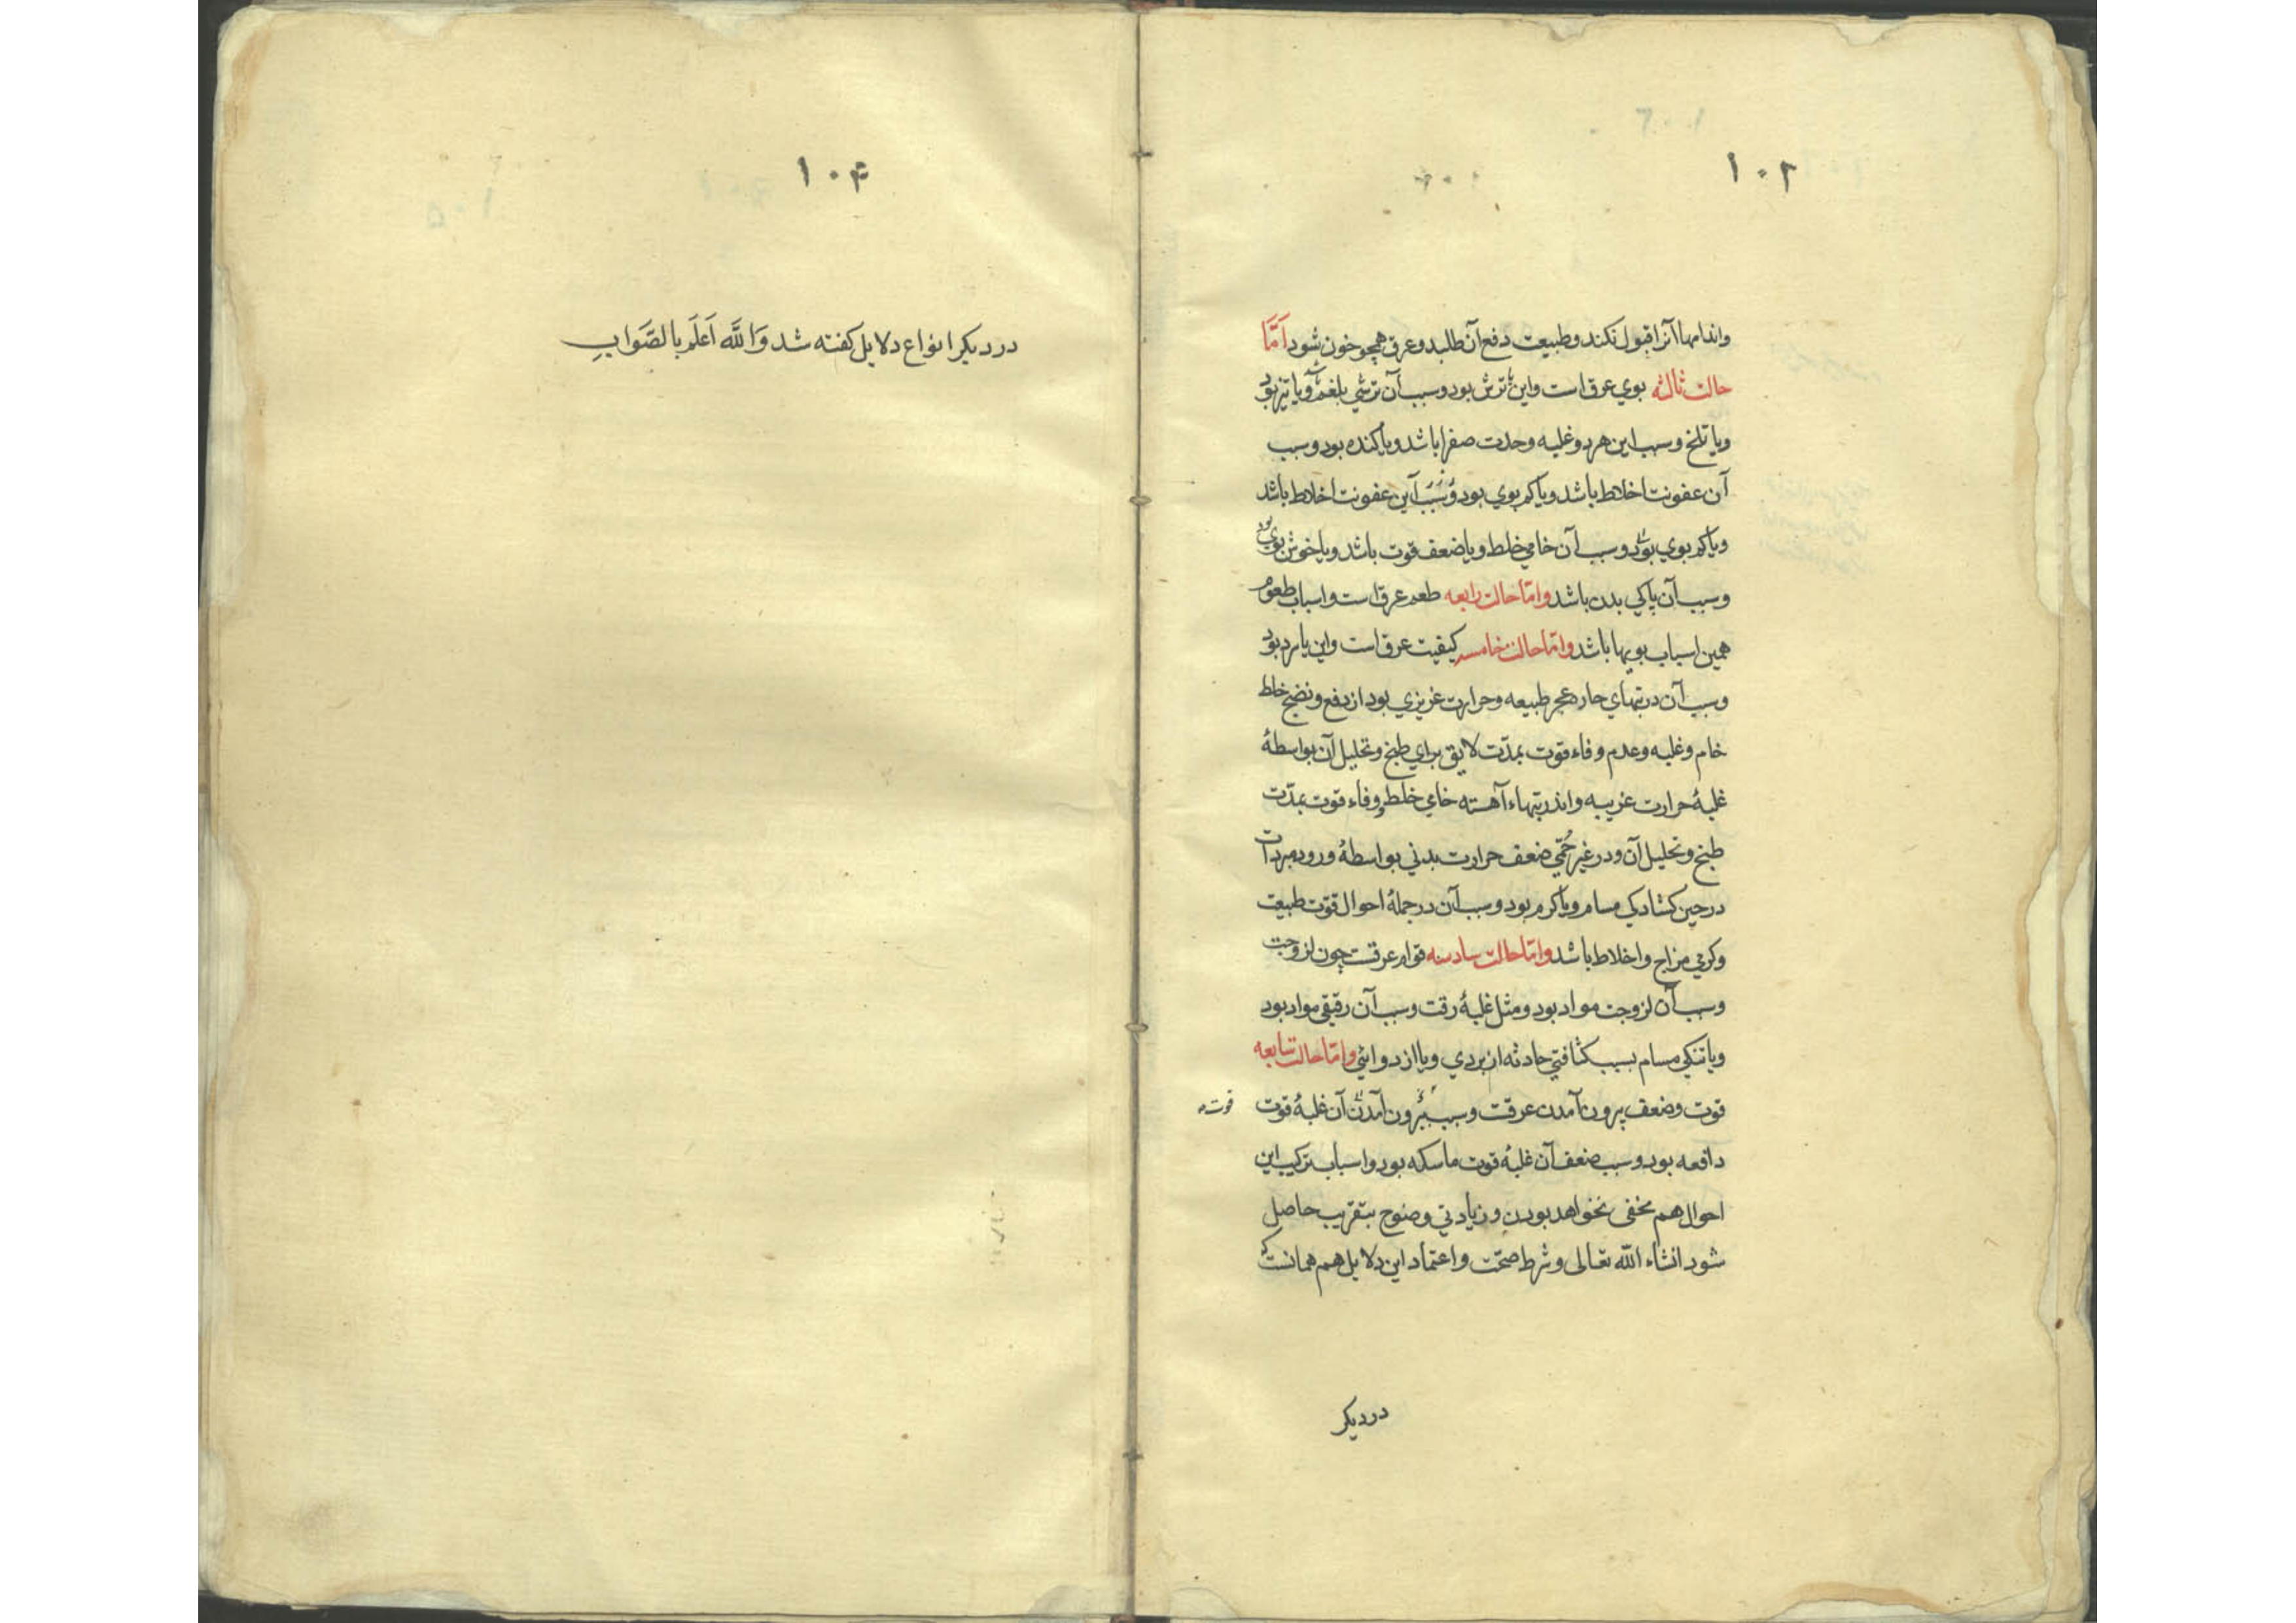 ۱۰۲
واندامها آنرا قبول نکند و طبیعت دفع آن طلبد و عرق همچو خون شود اَمَّا
حالت ثالثه بوي عرق است واین ترش بود وسبب آن ترشي بلغم و یا تیز بود
ویا تلخ وسبب این هر دو غلبه وحدت صفرا باشد ویا کنده بود وسبب
آن عفونت اخلاط باشد ویا کم بوي بود وَسَبَبْ این عفونت اخلاط باشد
ویا کم بوي بود وسبب آن خامي خلط ویا ضعف قوت باشد ویا خوش بوي بود
وسبب آن پاکي بدن باشد وامّا حالت رابعه طعم عرق است واسباب طعوم
همین اسباب بویها باشد وامّا حالت خامسه کیفیت عرق است واین یا سرد بود
وسبب آن در تبهاي حار عجز طبیعه وحرارت غریزي بود از دفع و نضج خلط
خام وغلبه وعدم وفاء قوت بمدّت لایق براي طبخ وتحلیل آن بواسطهٔ
غلبهٔ حرارت غریبه واندر تبهاء آهسته خامي خلط و وفاء قوت بمدّت
طبخ وتحلیل آن ودر غیر حُمّي ضعف حرارت بدني بواسطهٔ ورود مبردات
در حین کشادکي مسام ویا کرم بود وسبب آن در جملهٔ احوال قوّت طبیعت
وکرمي مزاج واخلاط باشد وامّا حالت سادسه قوام عرقست چون لزوجت
وسبب آن لزوجت مواد بود ومثل غلبهٔ رقت وسبب آن رقیقي مواد بود
ویا تنکي مسام بسبب کثافتي حادثه از سردي ویا از دوائي وامّا حالت سابعه
قوت وضعف بیرون آمدن عرقست وسبب بیرون آمدن آن غلبهٔ قوت
قوت
دافعه بود وسبب ضعف آن غلبهٔ قوت ماسکه بود واسباب ترکیب این
احوال هم مخفي نخواهد بودن وزیادتي وضوح بتقریب حاصل
شود انشاء الله تعالی وشرط صحّت واعتماد این دلایل هم همانست که
در دیکر
۱۰۴
در دیکر انواع دلایل کفته شد وَاللَّه اَعلَم بالصَّوابِ